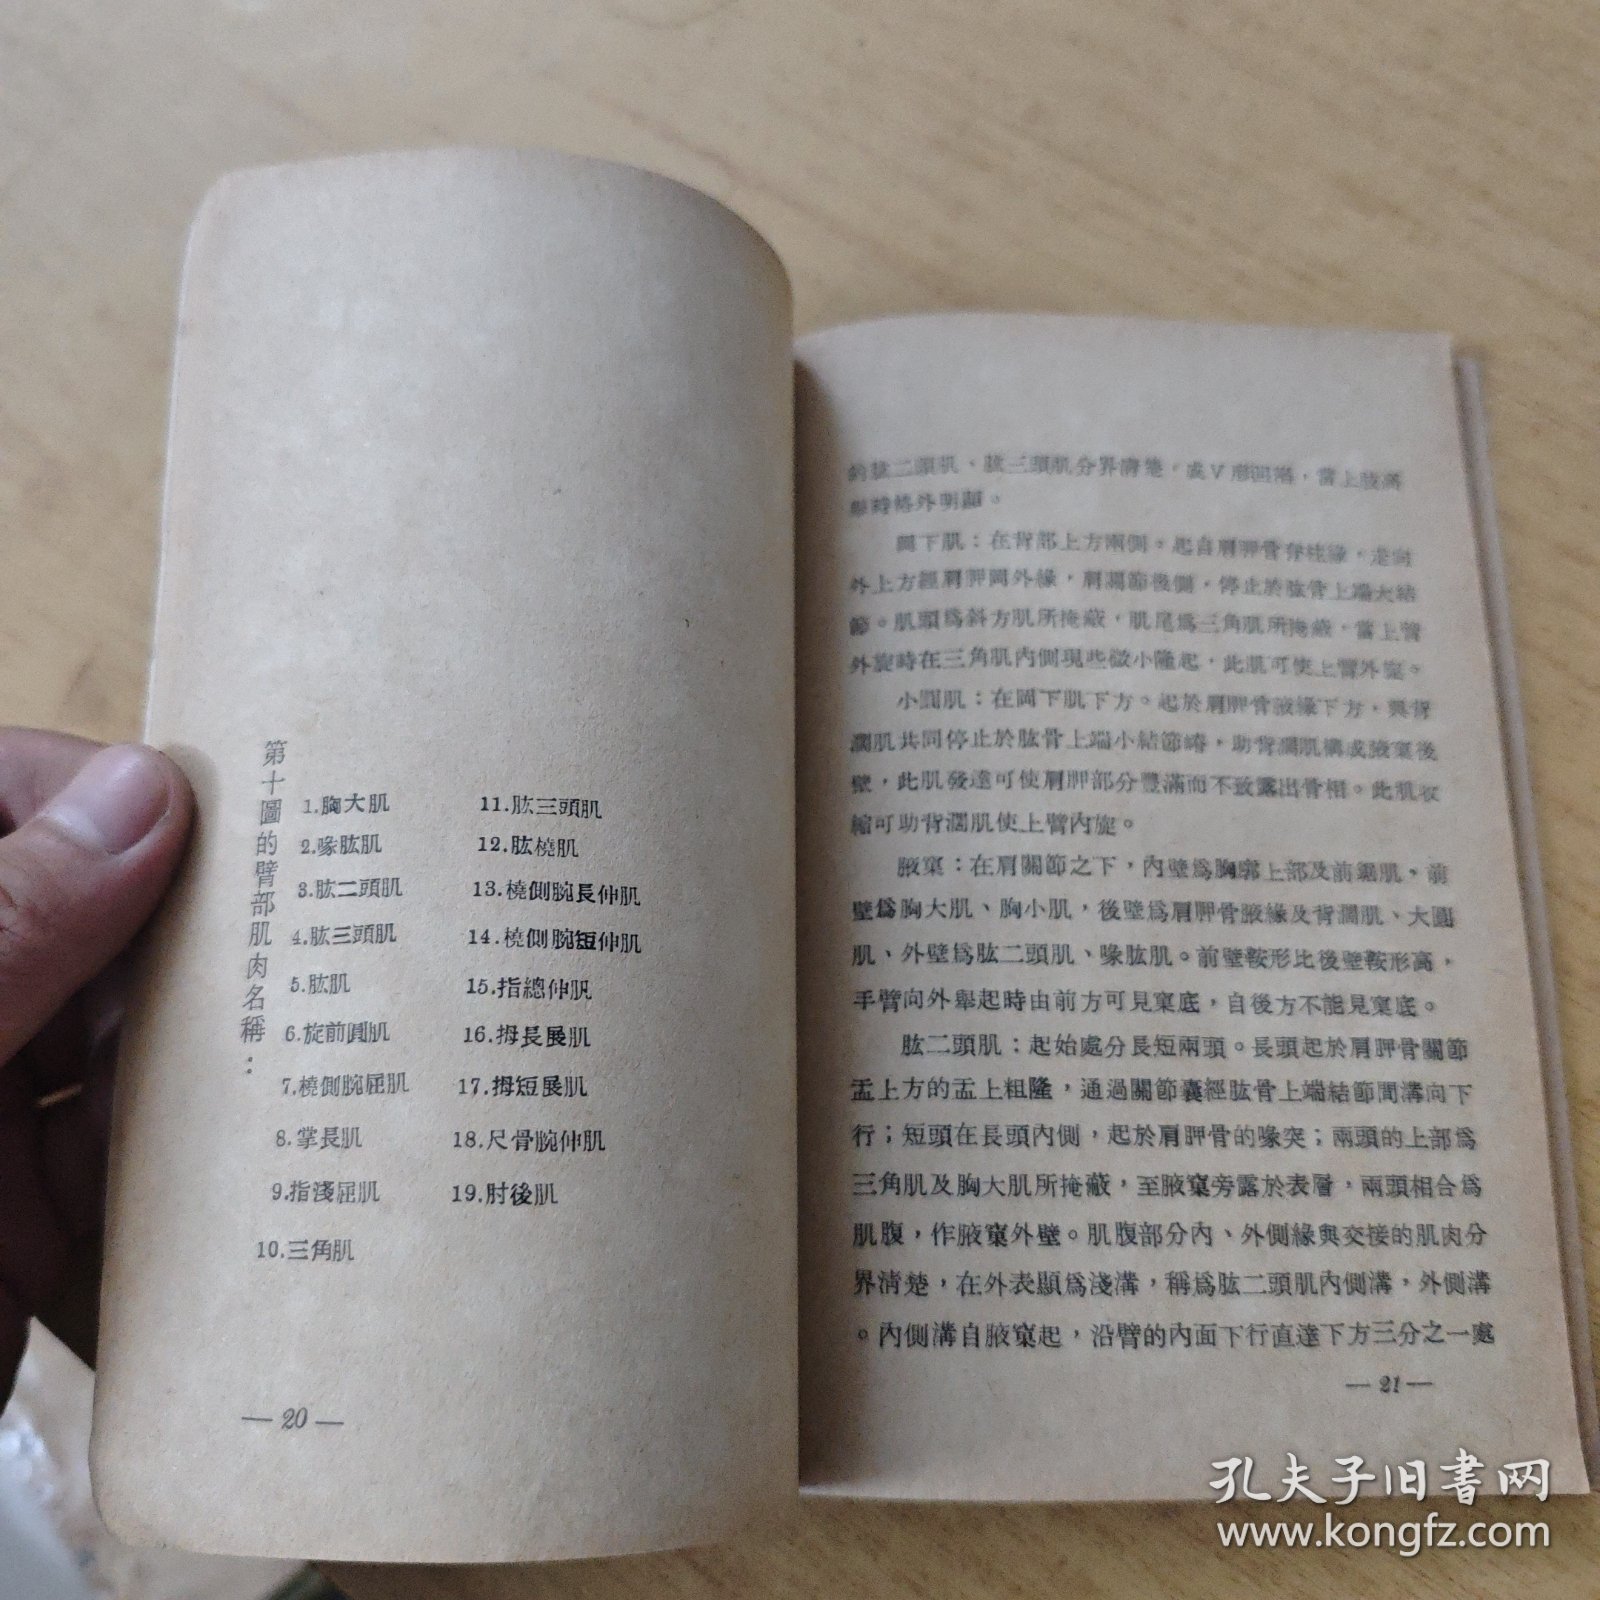 第十圖的臂部肌肉名稱：
1.胸大肌
2.喙肱肌
3.肱二頭肌
4.肱三頭肌
5.肱肌
6.旋前圓肌
7.橈側腕屈肌
8.掌長肌
9.指淺屈肌
10.三角肌
11.肱三頭肌
12.肱橈肌
13.橈側腕長伸肌
14.橈側腕短伸肌
15.指總伸肌
16.拇長展肌
17.拇短展肌
18.尺骨腕伸肌
19.肘後肌
— 20 —
肱二頭肌、肱三頭肌分界清楚，成V形凹溝，當上肢高
舉時格外明顯。
岡下肌：在背部上方兩側。起自肩胛骨脊柱緣，走向
外上方經肩胛岡外緣，肩關節後側，停止於肱骨上端大結
節。肌頭為斜方肌所掩蔽，肌尾為三角肌所掩蔽，當上臂
外旋時在三角肌內側現些微小隆起，此肌可使上臂外旋。
小圓肌：在岡下肌下方。起於肩胛骨液緣下方，與背
濶肌共同停止於肱骨上端小結節嵴，助背濶肌構成腋窠後
壁，此肌發達可使肩胛部分豐滿而不致露出骨相。此肌收
縮可助背濶肌使上臂內旋。
腋窠：在肩關節之下，內壁為胸廓上部及前鋸肌，前
壁為胸大肌、胸小肌，後壁為肩胛骨腋緣及背濶肌、大圓
肌、外壁為肱二頭肌、喙肱肌。前壁鞍形比後壁鞍形高，
手臂向外舉起時由前方可見窠底，自後方不能見窠底。
肱二頭肌：起始處分長短兩頭。長頭起於肩胛骨關節
盂上方的盂上粗隆，通過關節囊經肱骨上端結節間溝向下
行；短頭在長頭內側，起於肩胛骨的喙突；兩頭的上部為
三角肌及胸大肌所掩蔽，至腋窠旁露於表層，兩頭相合為
肌腹，作腋窠外壁。肌腹部分內、外側緣與交接的肌肉分
界清楚，在外表顯為淺溝，稱為肱二頭肌內側溝，外側溝
。內側溝自腋窠起，沿臂的內面下行直達下方三分之一處
— 21 —
孔夫子旧書网
www.kongfz.com